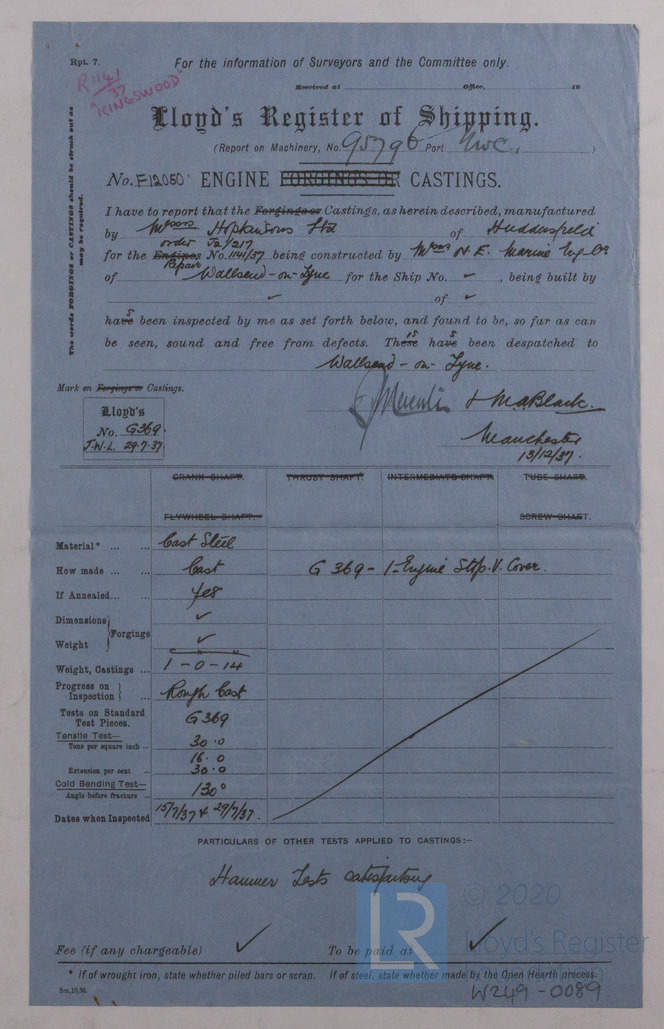 Rpt. 7.
R 1141/37
"KINGSWOOD"
For the information of Surveyors and the Committee only.
Received at Office, 19
Lloyd's Register of Shipping.
(Report on Machinery, No. 95796 Port NWC. )
No. F12050. ENGINE FORGINGS OR CASTINGS.
The words FORGINGS or CASTINGS should be struck out as may be required.
I have to report that the Forgings or Castings, as herein described, manufactured
by Messrs Hopkinsons Ltd of Huddersfield
order J2/217
for the Engines No. 1141/37 being constructed by Messrs N. E. Marine Eng. Co
Repair
of Wallsend-on-Tyne for the Ship No. ✓, being built by
✓ of ✓
have been inspected by me as set forth below, and found to be, so far as can
be seen, sound and free from defects. These have been despatched to
Wallsend-on-Tyne.
Mark on Forgings or Castings.
Lloyd's
No. G369.
J.W.L. 29.7.37
& M.A. Black.
Manchester
13/12/37.
CRANK SHAFT. THRUST SHAFT. INTERMEDIATE SHAFT. TUBE SHAFT.
FLYWHEEL SHAFT. SCREW SHAFT.
Material* ... ... Cast Steel
How made ... ... Cast G 369 - 1-Engine Stop. V. Cover.
If Annealed... ... Yes
Dimensions } Forgings ✓
Weight ✓
Weight, Castings ... 1 - 0 - 14
Progress on Inspection } Rough Cast
Tests on Standard Test Pieces. G369
Tensile Test—
Tons per square inch 30.0
16.0
Extension per cent 30.0
Cold Bending Test—
Angle before fracture 130°
Dates when Inspected 15/7/37 & 29/7/37.
PARTICULARS OF OTHER TESTS APPLIED TO CASTINGS:—
Hammer Tests satisfactory
Fee (if any chargeable) ✓ To be paid at ✓
* If of wrought iron, state whether piled bars or scrap. If of steel, state whether made by the Open Hearth process.
5m,10,36.
W249-0089
LR
© 2020
Lloyd's Register
Foundation